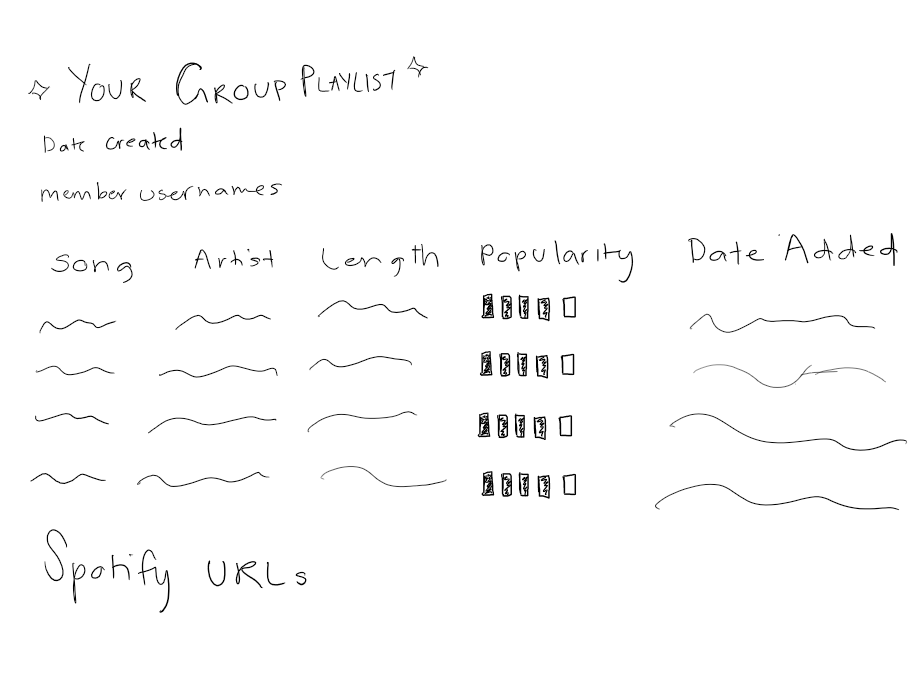 YOUR GROUP PLAYLIST
Date created
member usernames
Song Artist Length Popularity Date Added
Spotify URLs